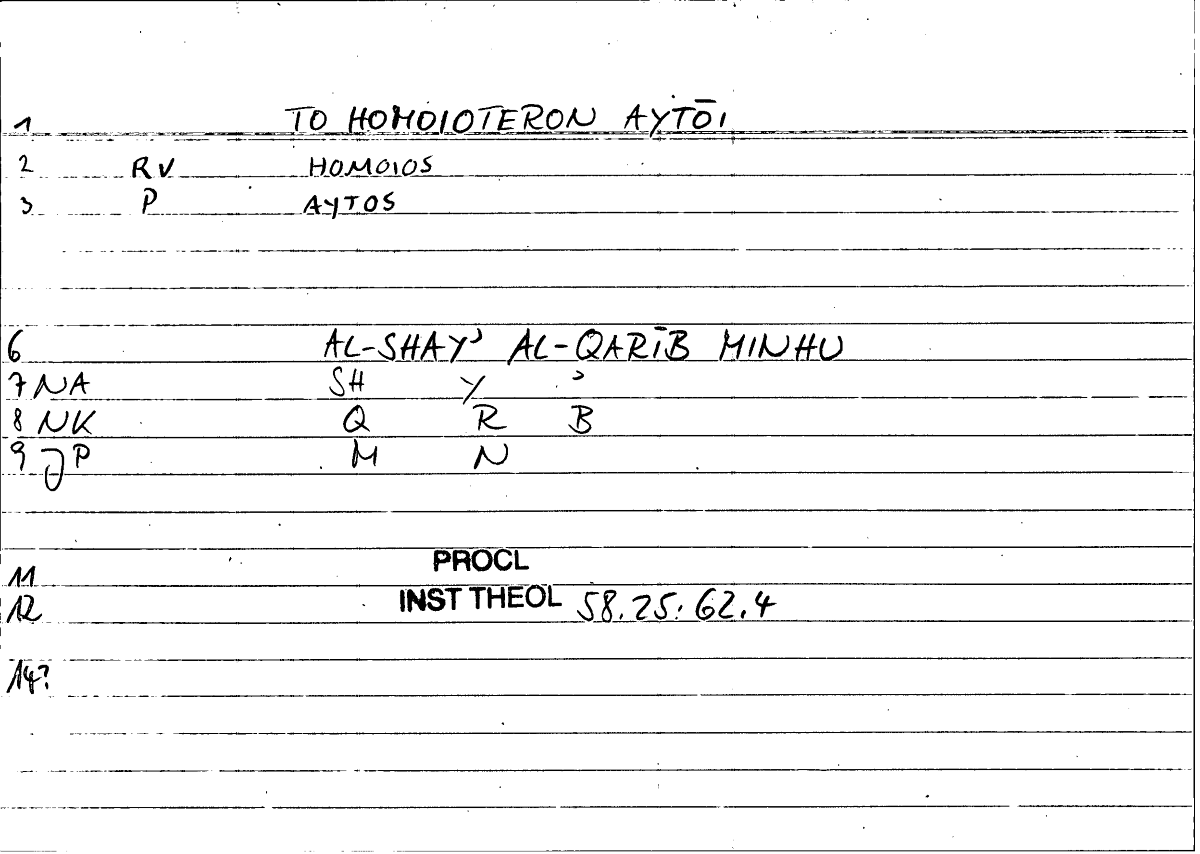 1 TO HOMOIOTERON AYTŌI
2 RV HOMOIOS
3 P AYTOS
6 AL-SHAY' AL-QARĪB MINHU
7 NA SH Y '
8 NK Q R B
9 JP M N
11 PROCL
12 INST THEOL 58.25: 62.4
14?